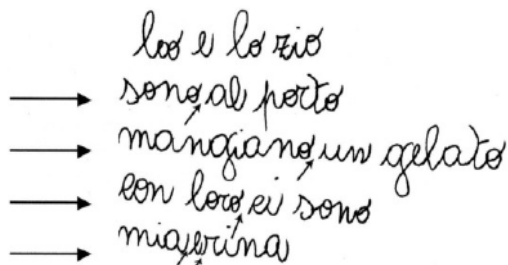 leo e lo zio
sono al porto
mangiano un gelato
con loro ci sono
mia e rina